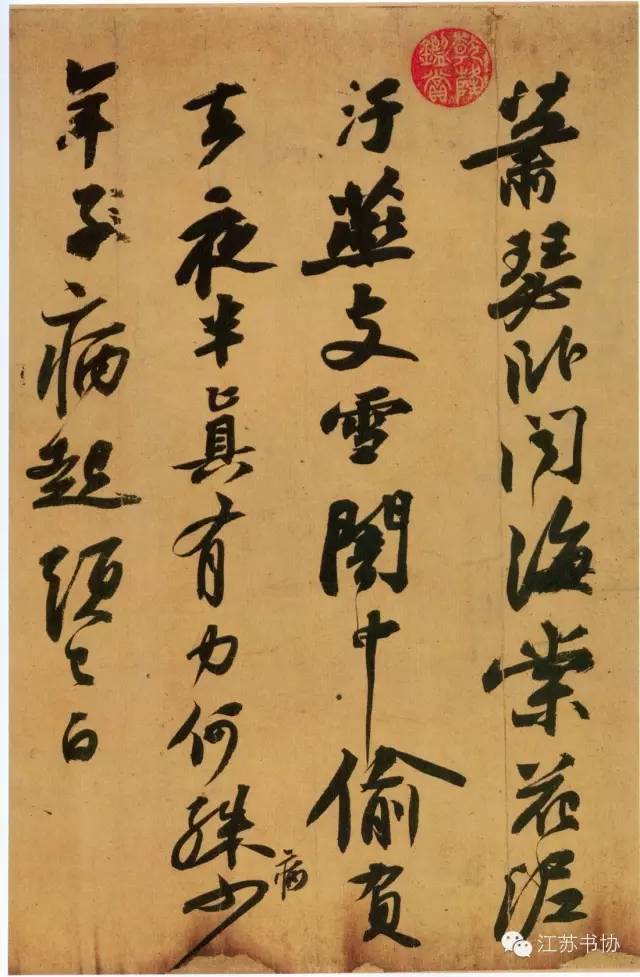 蕭瑟臥聞海棠花泥
汙燕支雪闇中偷負
去夜半真有力何殊病少
年子病起頭已白
乾隆鑑賞
江苏书协